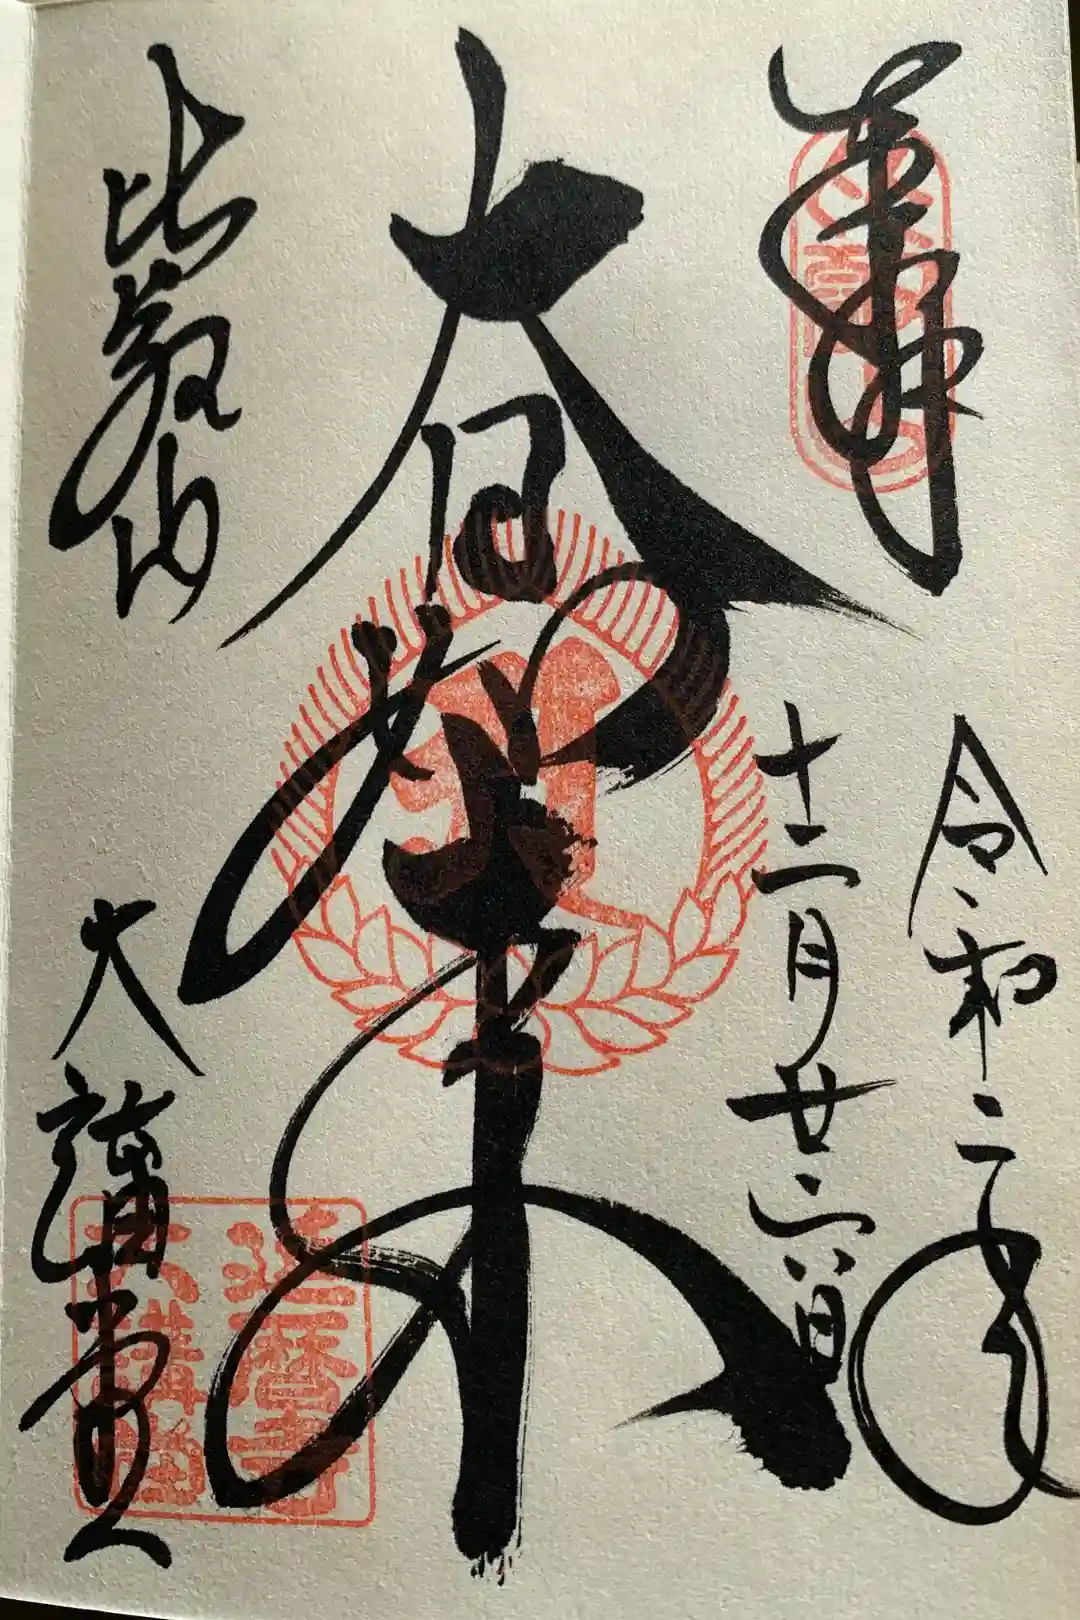 奉拝
令和二年
十二月廿六日
大日如来
比叡山
大講堂
延暦寺
大講堂